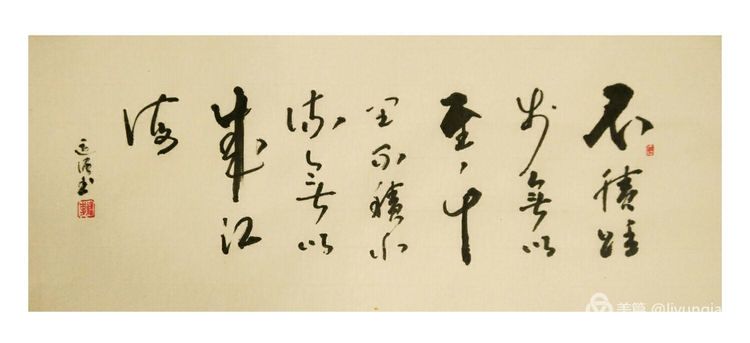 不積跬
步無以
至千
里不積小
流無以
成江
海
书
美篇 @liyunqia